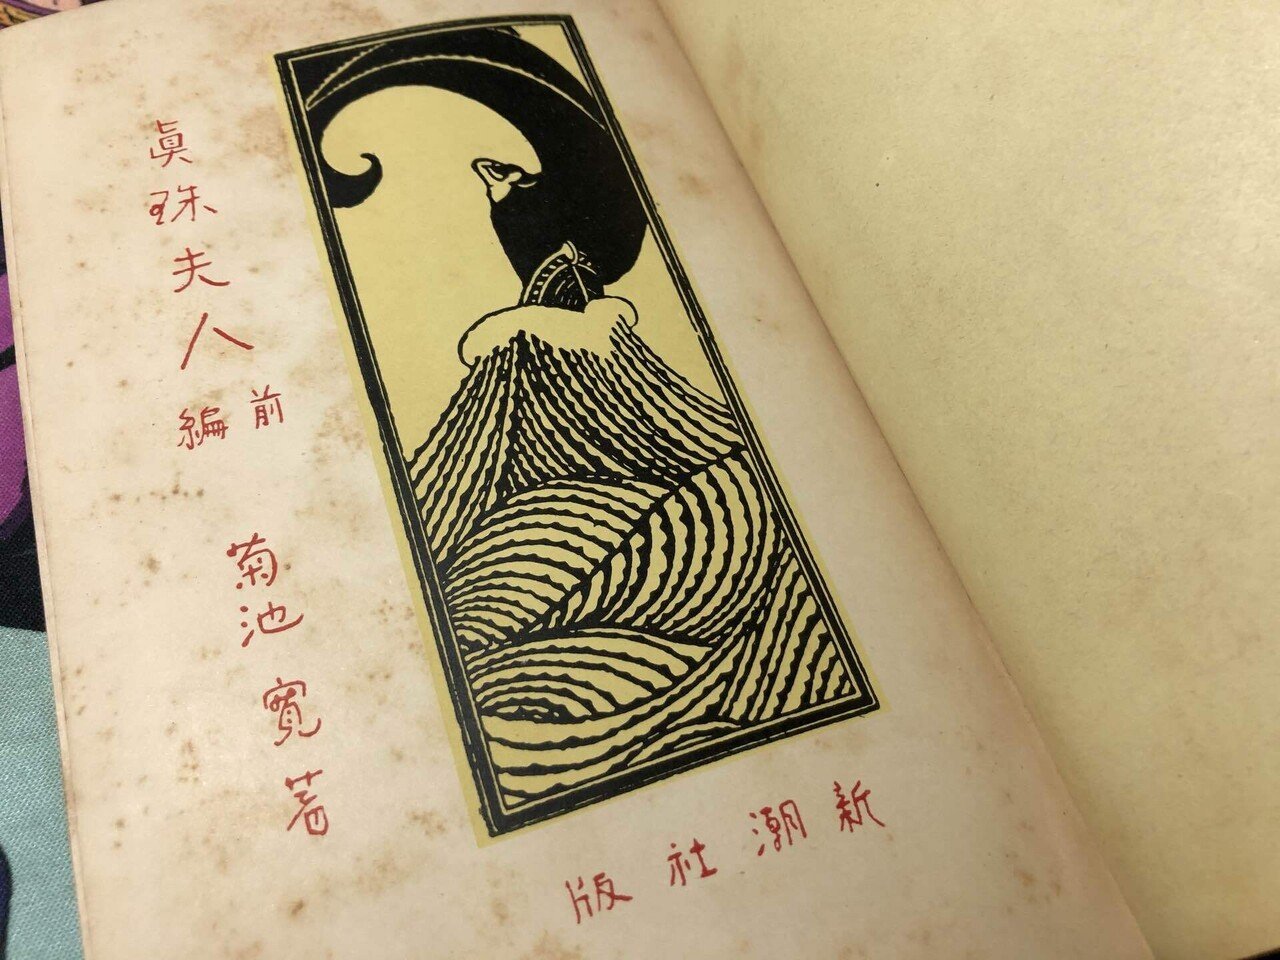 眞珠夫人
前編
菊池寛著
新潮社版